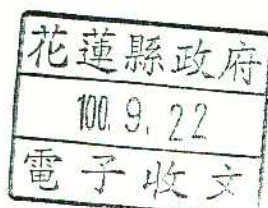 花蓮縣政府
100.9.22
電子收文